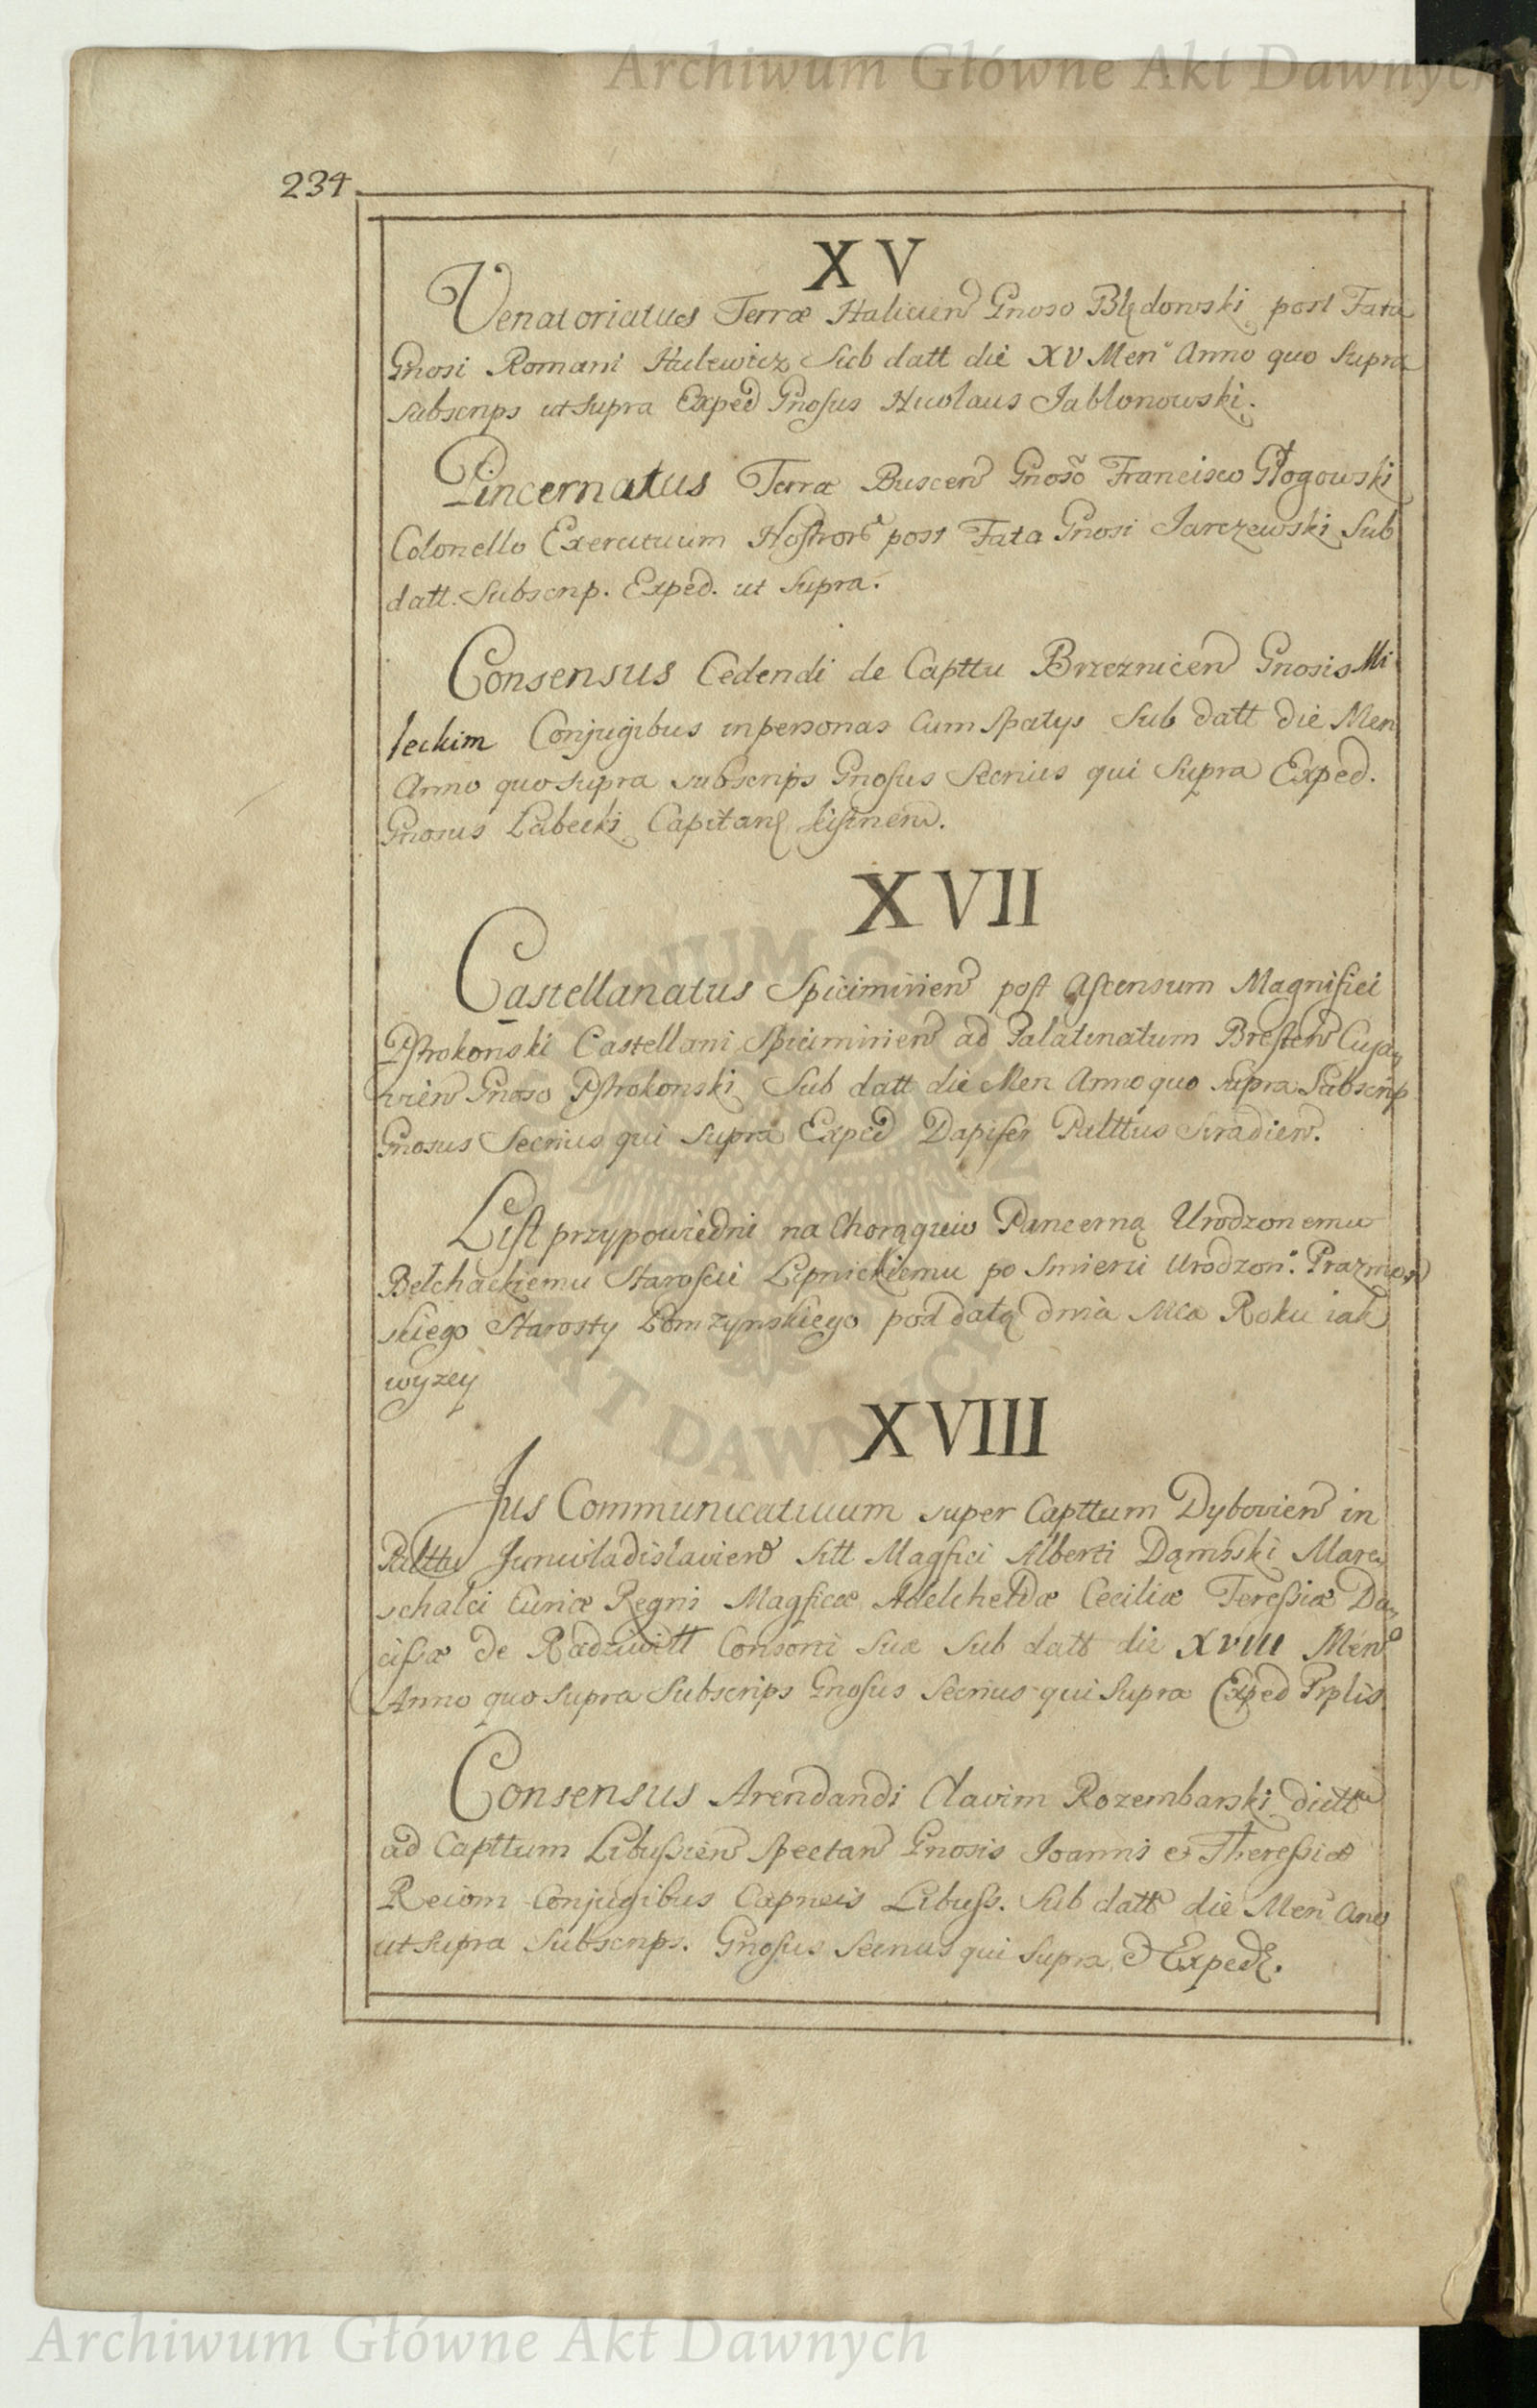 Archiwum Główne Akt Dawnych
234
XV
Venatoriatus Terræ Halicien Gnoso Błędowski post Fata
Gnosi Romani Hulewicz Sub datt die XV Men Anno quo Supra
Subscrips ut Supra Exped Gnosus Nicolaus Jabłonowski.
Pincernatus Terræ Buscen Gnoso Francisco Głogowski
Colonello Exercituum Nostror post Fata Gnosi Jarczewski Sub
datt. Subscrip. Exped. ut Supra.
Consensus Cedendi de Capttu Brzeznicen Gnosis Mi
leckim Conjugibus in personas Cum Spatys Sub datt die Men
Anno quo supra subscrips Gnosus Secrius qui Supra Exped.
Gnosus Łabecki Capitan
XVII
Castellanatus Spicimirien post Ascensum Magnifici
Pstrokonski Castellani Spicimirien ad Palatinatum Bresten Cuja
vien Gnoso Pstrokonski Sub datt die Men Anno quo Supra Subscrip
Gnosus Secrius qui Supra Exped Dapifer Palttus Siradien.
List przypowiedni na Chorągwiu Pancerną Urodzonemu
Bełchackiemu Staroscie Lipnickiemu po Smierci Urodzon: Prazmow
skiego Starosty Łomzynskiego pod datą dnia Mca Roku iak
wyzey
XVIII
Jus Communicativum super Capttum Dybovien in
Palttu Juniwladislavien sitt Magfici Alberti Dąmbski Mare
schalci Curiæ Regni Magficæ Adelcheldæ Ceciliæ Teressiæ Du
cissæ de Radziwiłł Consorti Suæ Sub datt die XVIII Men
Anno quo Supra Subscrips Gnosus Secrius qui Supra Exped Prplis
Consensus Arendandi Clavim Rozembarski dictt
ad Capttum Libussien Spectan Gnosis Joannis et Theressiæ
Reiom Conjugibus Capneis Libuss. Sub datt die Men Ano
ut Supra Subscrips. Gnosus Secrius qui Supra Exped.
Archiwum Główne Akt Dawnych